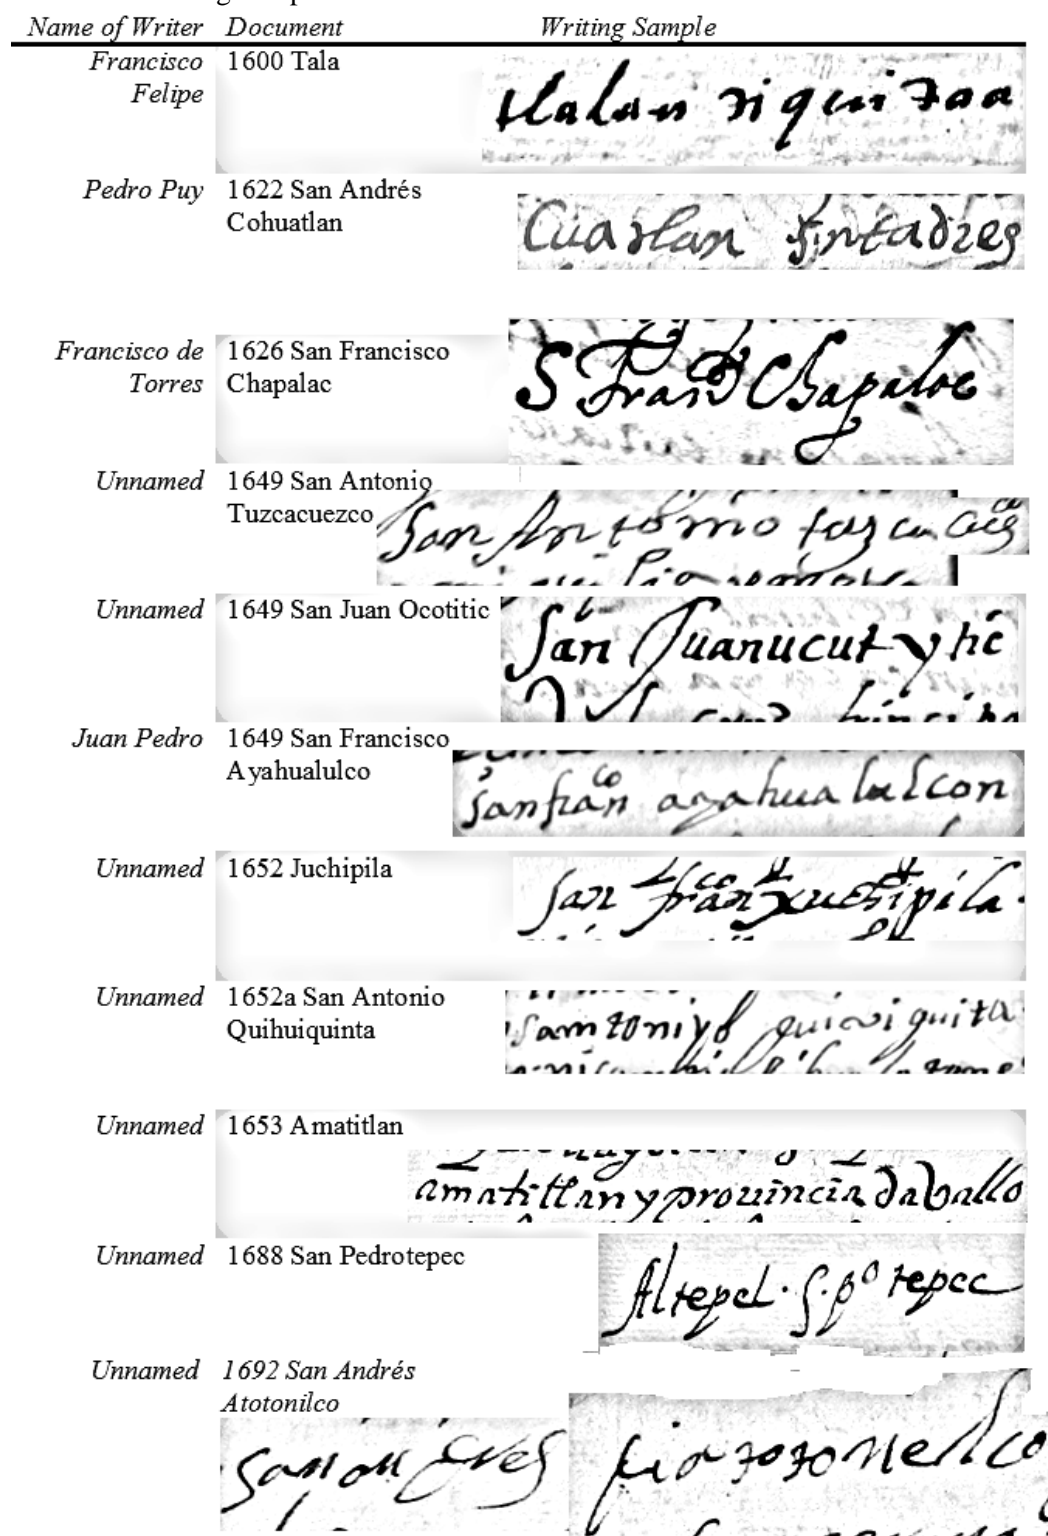 Name of Writer Document Writing Sample
Francisco Felipe 1600 Tala
tlalan
Pedro Puy 1622 San Andrés Cohuatlan
Cuatlan
Francisco de Torres 1626 San Francisco Chapalac
S Franco Chapalac
Unnamed 1649 San Antonio Tuzcacuezco
San Antonio
Unnamed 1649 San Juan Ocotitic
San Juanucutytic
Juan Pedro 1649 San Francisco Ayahualulco
sanfranco ayahualulcon
Unnamed 1652 Juchipila
san franco xuchipila
Unnamed 1652a San Antonio Quihuiquinta
Unnamed 1653 Amatitlan
amatitlan y prouincia
Unnamed 1688 San Pedrotepec
Altepel. S. po tepec
Unnamed 1692 San Andrés Atotonilco